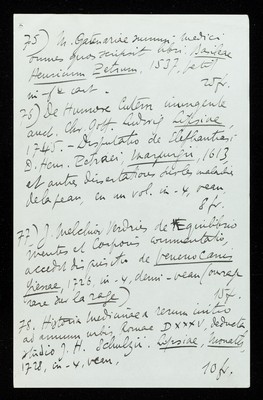 75) M. Gatenariae summi medici
omnes quos scripsit libri. Basileae
Henricum Petrum, 1537, petit
in-fº cart.
25 fr.
76) De Humore cutem inungente
auct. Chr. Gott. Ludwig Lipsiae
1745. – Disputatio de Elephantiasi
D. Henr. Petraei, Marpurgi, 1613
et autres dissertations sur les maladies
de la peau, en un vol. in-4, veau
8 fr.
77) J. Melchior Verdries de Æquilibrio
mentis et Corporis commentatio,
accedit disquisitio de veneno Canis
Giessae, 1726, in-4, demi-veau (ouvrage
rare sur la rage)
15 fr.
78. Historia medicinae a rerum initio
ad annum urbis Romae DXXXV, deducta
studio J. H. Schulzii. Lipsiae, Monath,
1728, in-4, veau,
10 fr.